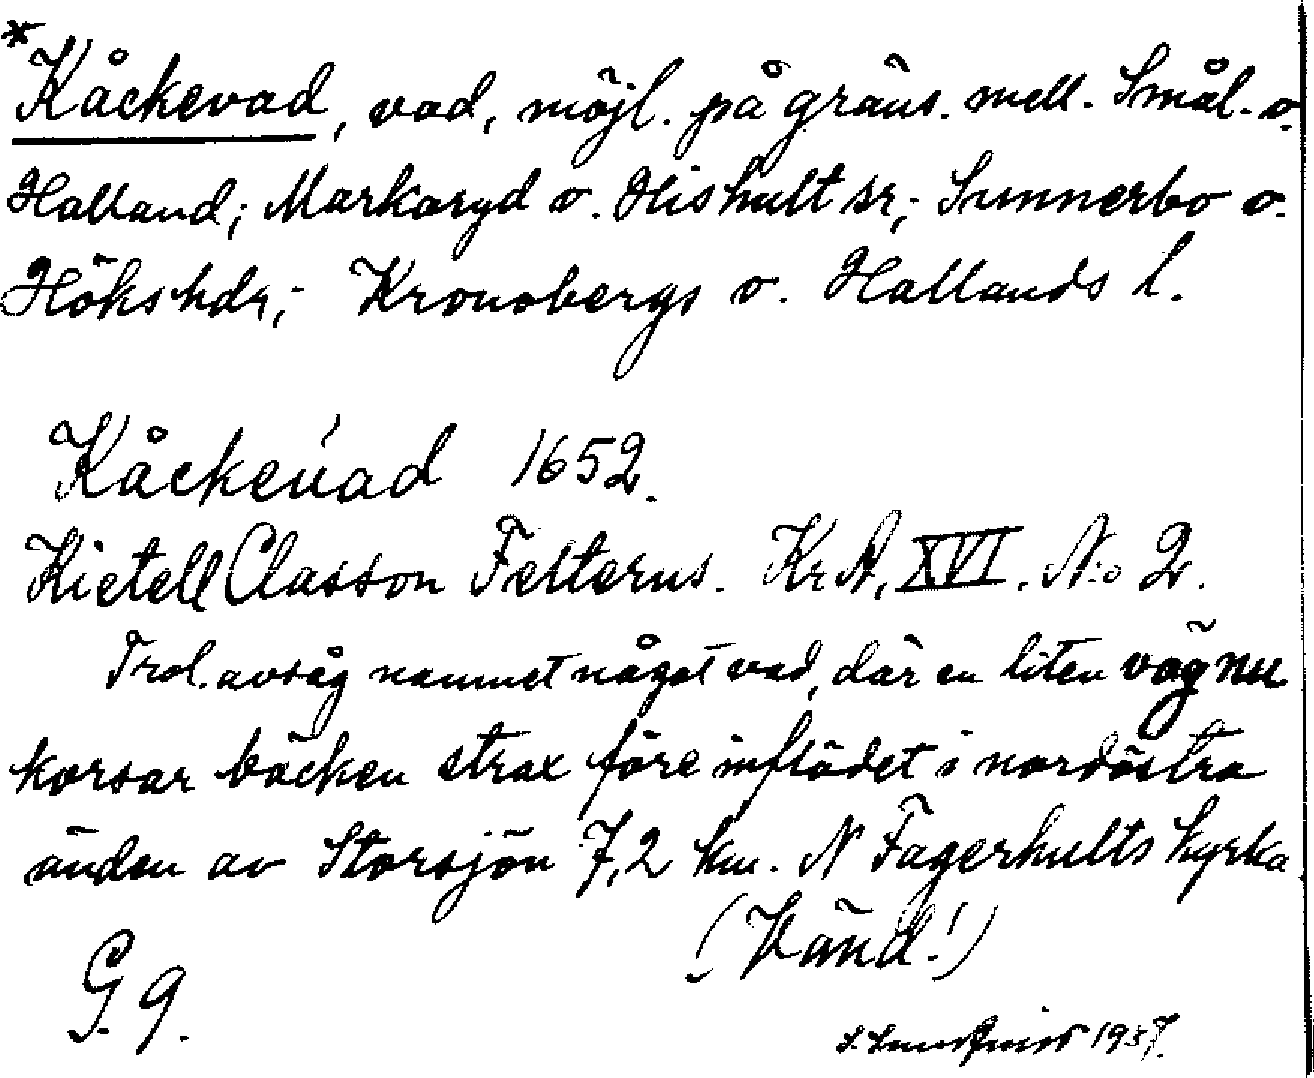 *Kåckevad, vad, möjl. på gräns. mell. Smål. o.
Halland; Markaryd o. Hishult sr; Sunnerbo o.
Höks hdr; Kronobergs o. Hallands l.
Kåckevad 1652.
Kietell Classon Felterus. KrA, XVI. N:o 2.
Trol. avsåg namnet något vad, där en liten väg nu
korsar bäcken strax före inflödet i nordöstra
änden av Storsjön 7,2 km. N Fagerhults kyrka.
(Vänd!)
G. 9.
1937.